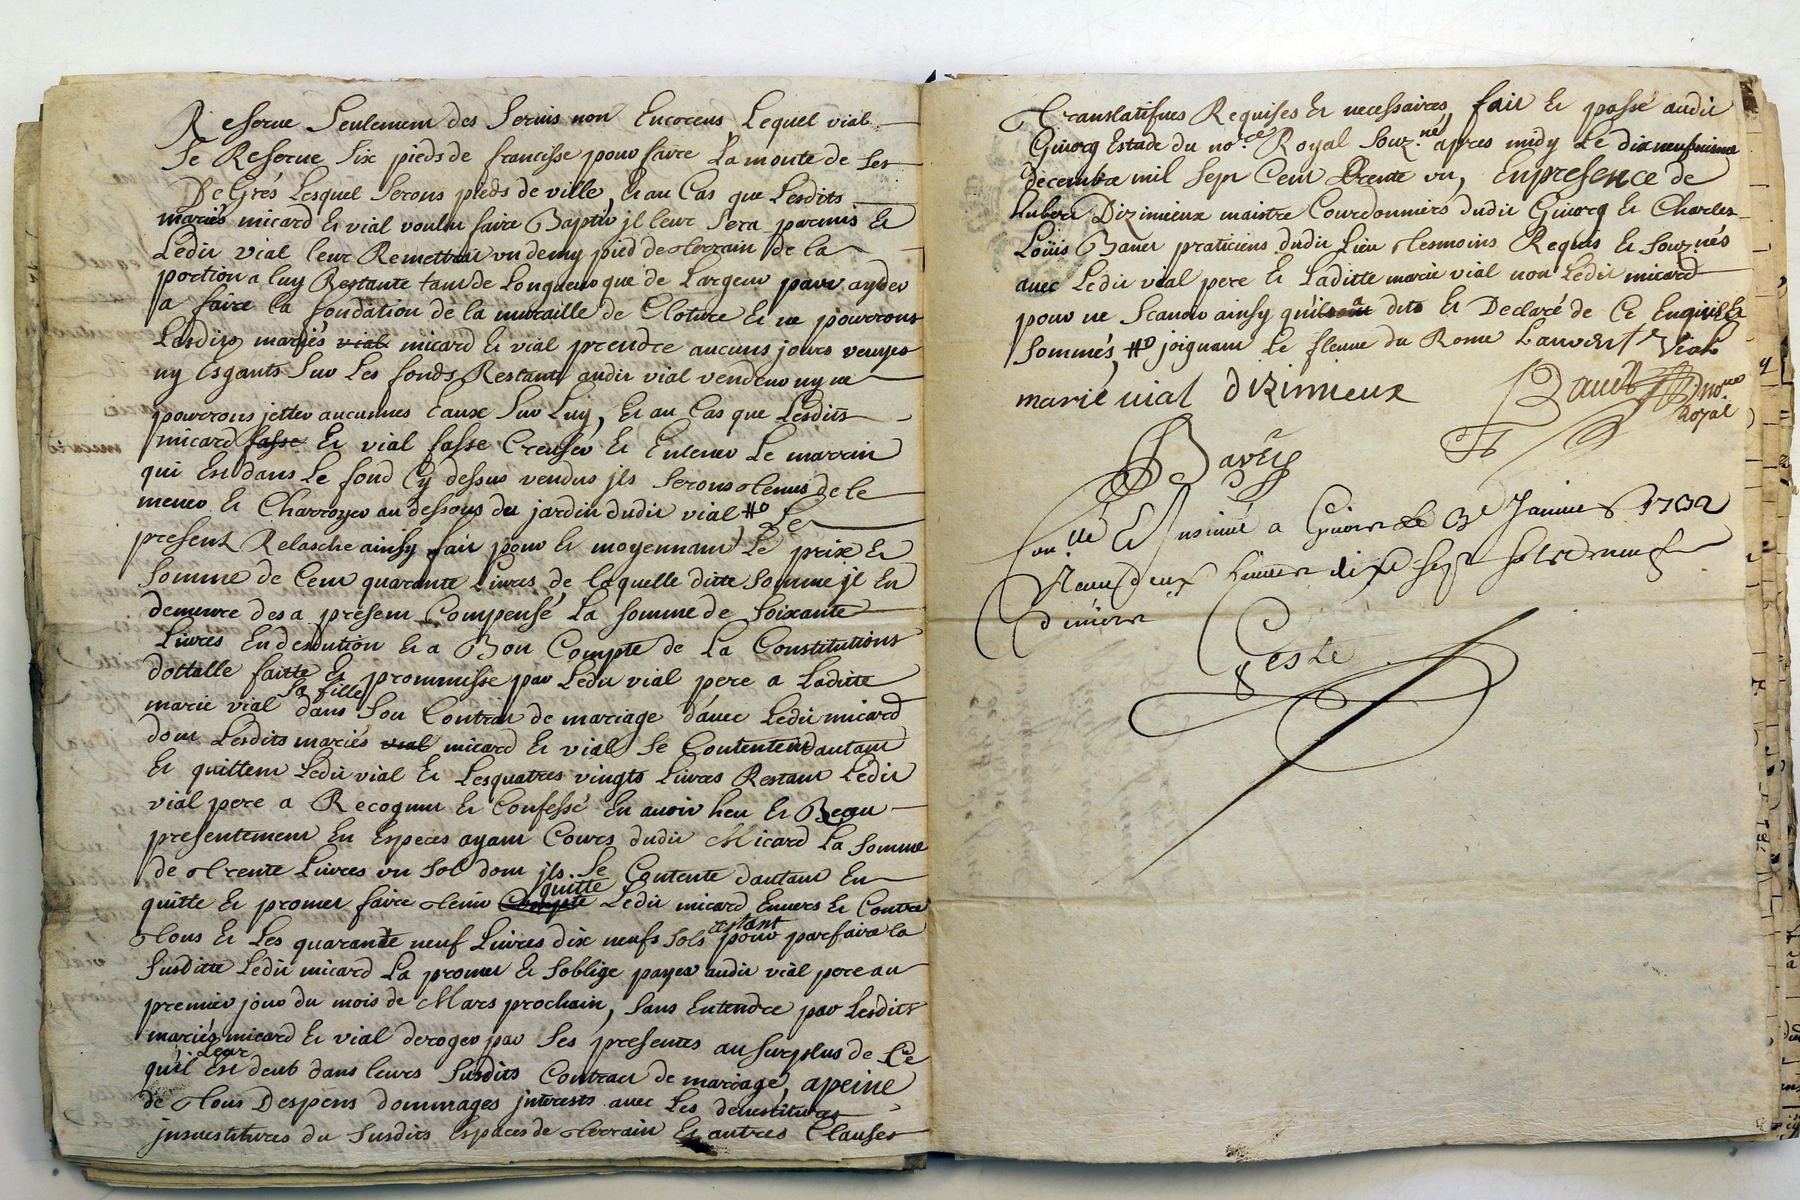 Reserve Seulement des Servis non Encoreus Lequel vial
Se Reserve Six pieds de francisse pour faire La monte de Ses
DeGrés Lesquel Serons pieds de ville, Et au Cas que Lesdits
mariés micard Et vial voulu faire Baptir jl leur Sera parmis Et
Ledit vial leur Remettrai un demy pied de terrain de la
portion a luy Restante tant de Longueur que de Largeur pour ayder
a faire la fondation de la muraille de Cloture Et ne pourrons
Lesdits mariés vial micard Et vial prendre aucuns jours veuyes
ny Esgants Sur Les fonds Restants audit vial vendeur ny ne
pourrons jetter aucunnes Eaux Sur Luy, Et au Cas que Lesdits
micard fasse Et vial fasse Creuser Et Enlever Le marrin
qui Est dans Le fond Cy dessus vendus jls Serons tenus de le
mener Et Charroyer au dessous du jardin dudit vial # Le
present Relasche ainsy fait pour Et moyennant Le prix Et
Somme de Cent quarante Livres, de laquelle ditte Somme jl En
demeure des a present Compensé La somme de Soixante
Livres En desdution Et a Bon Compte de La Constitutions
dottalle faitte Et prommisse par Ledit vial pere a Laditte
marie vial Sa fille dans Son Contrat de mariage d'avec Ledit micard
dont Lesdits mariés vial micard Et vial Se Contentent d'autant
Et quittent Ledit vial Et Lesquatres vingts Livres Restant Ledit
vial pere a Recognu Et Confessé En avoir heu Et Receu
presentement En Especes ayant Cours dudit Micard La Somme
de trente Livres un Sol dont jls Se Contente d'autant En
quitte Et promet faire tenir Compte quitte Ledit micard Envers Et Contre
tous Et Les quarante neuf Livres dix neufs Sols restant pour parfaire la
Susditte Ledit micard La promet Et Soblige payer audit vial pere au
premier jour du mois de Mars prochain, Sans Entendre par Lesdits
mariés micard Et vial deroger par Ses presentes au Surplus de Ce
qu'il Leur Est deub dans leurs Susdits Contract de mariage, apeine
de tous Despens dommages jnterests avec Les devestitures
jnvestitures du Susdits Espaces de terrain Et autres Clauses
Translatifves Requises Et necessaires, fait Et passé audit
Givorg Estude du no.re Royal Souz.né apres midy Le dixneufviesme
decembre mil Sept Cent trente un, Enpresence de
hubert Dizimieux maistre Courdonniers dudit Givorg Et Charles
Loüis Baver praticiens dudit Lieu tesmoins Requis Et Souznés
avec Ledit vial pere Et Laditte marie vial non Ledit micard
pour ne Scavoir ainsy qu'il a dits Et Declaré de Ce Enquis Et
Sommés, # joignant Le fleuve du Rone Lauvent Vial
marie vial dizimieux
no.re
Royal
Con.llé Et Insinué a Givors le 3e Janvier 1732
Reçu deux livres dix Sept Sols neuf
deniers